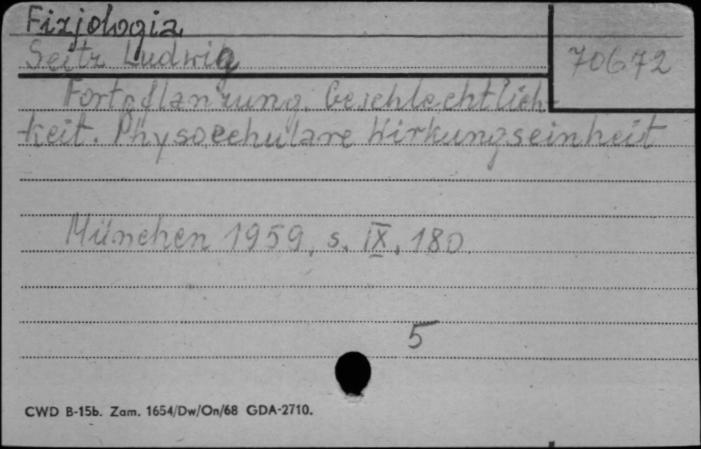 Fizjologia
Seitz Ludwig
70672
Fortpflanzung. Geschlechtlich-
keit. Physocehulare Wirkungseinheit
München 1959, s. IX, 180
5
CWD B-15b. Zam. 1654/Dw/On/68 GDA-2710.